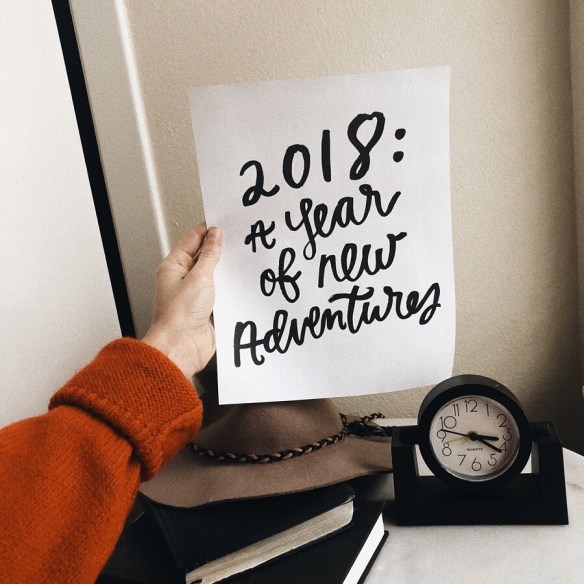 2018:
A year
of new
Adventures
12
11
1
10
2
9
3
8
4
7
5
6
QUARTZ